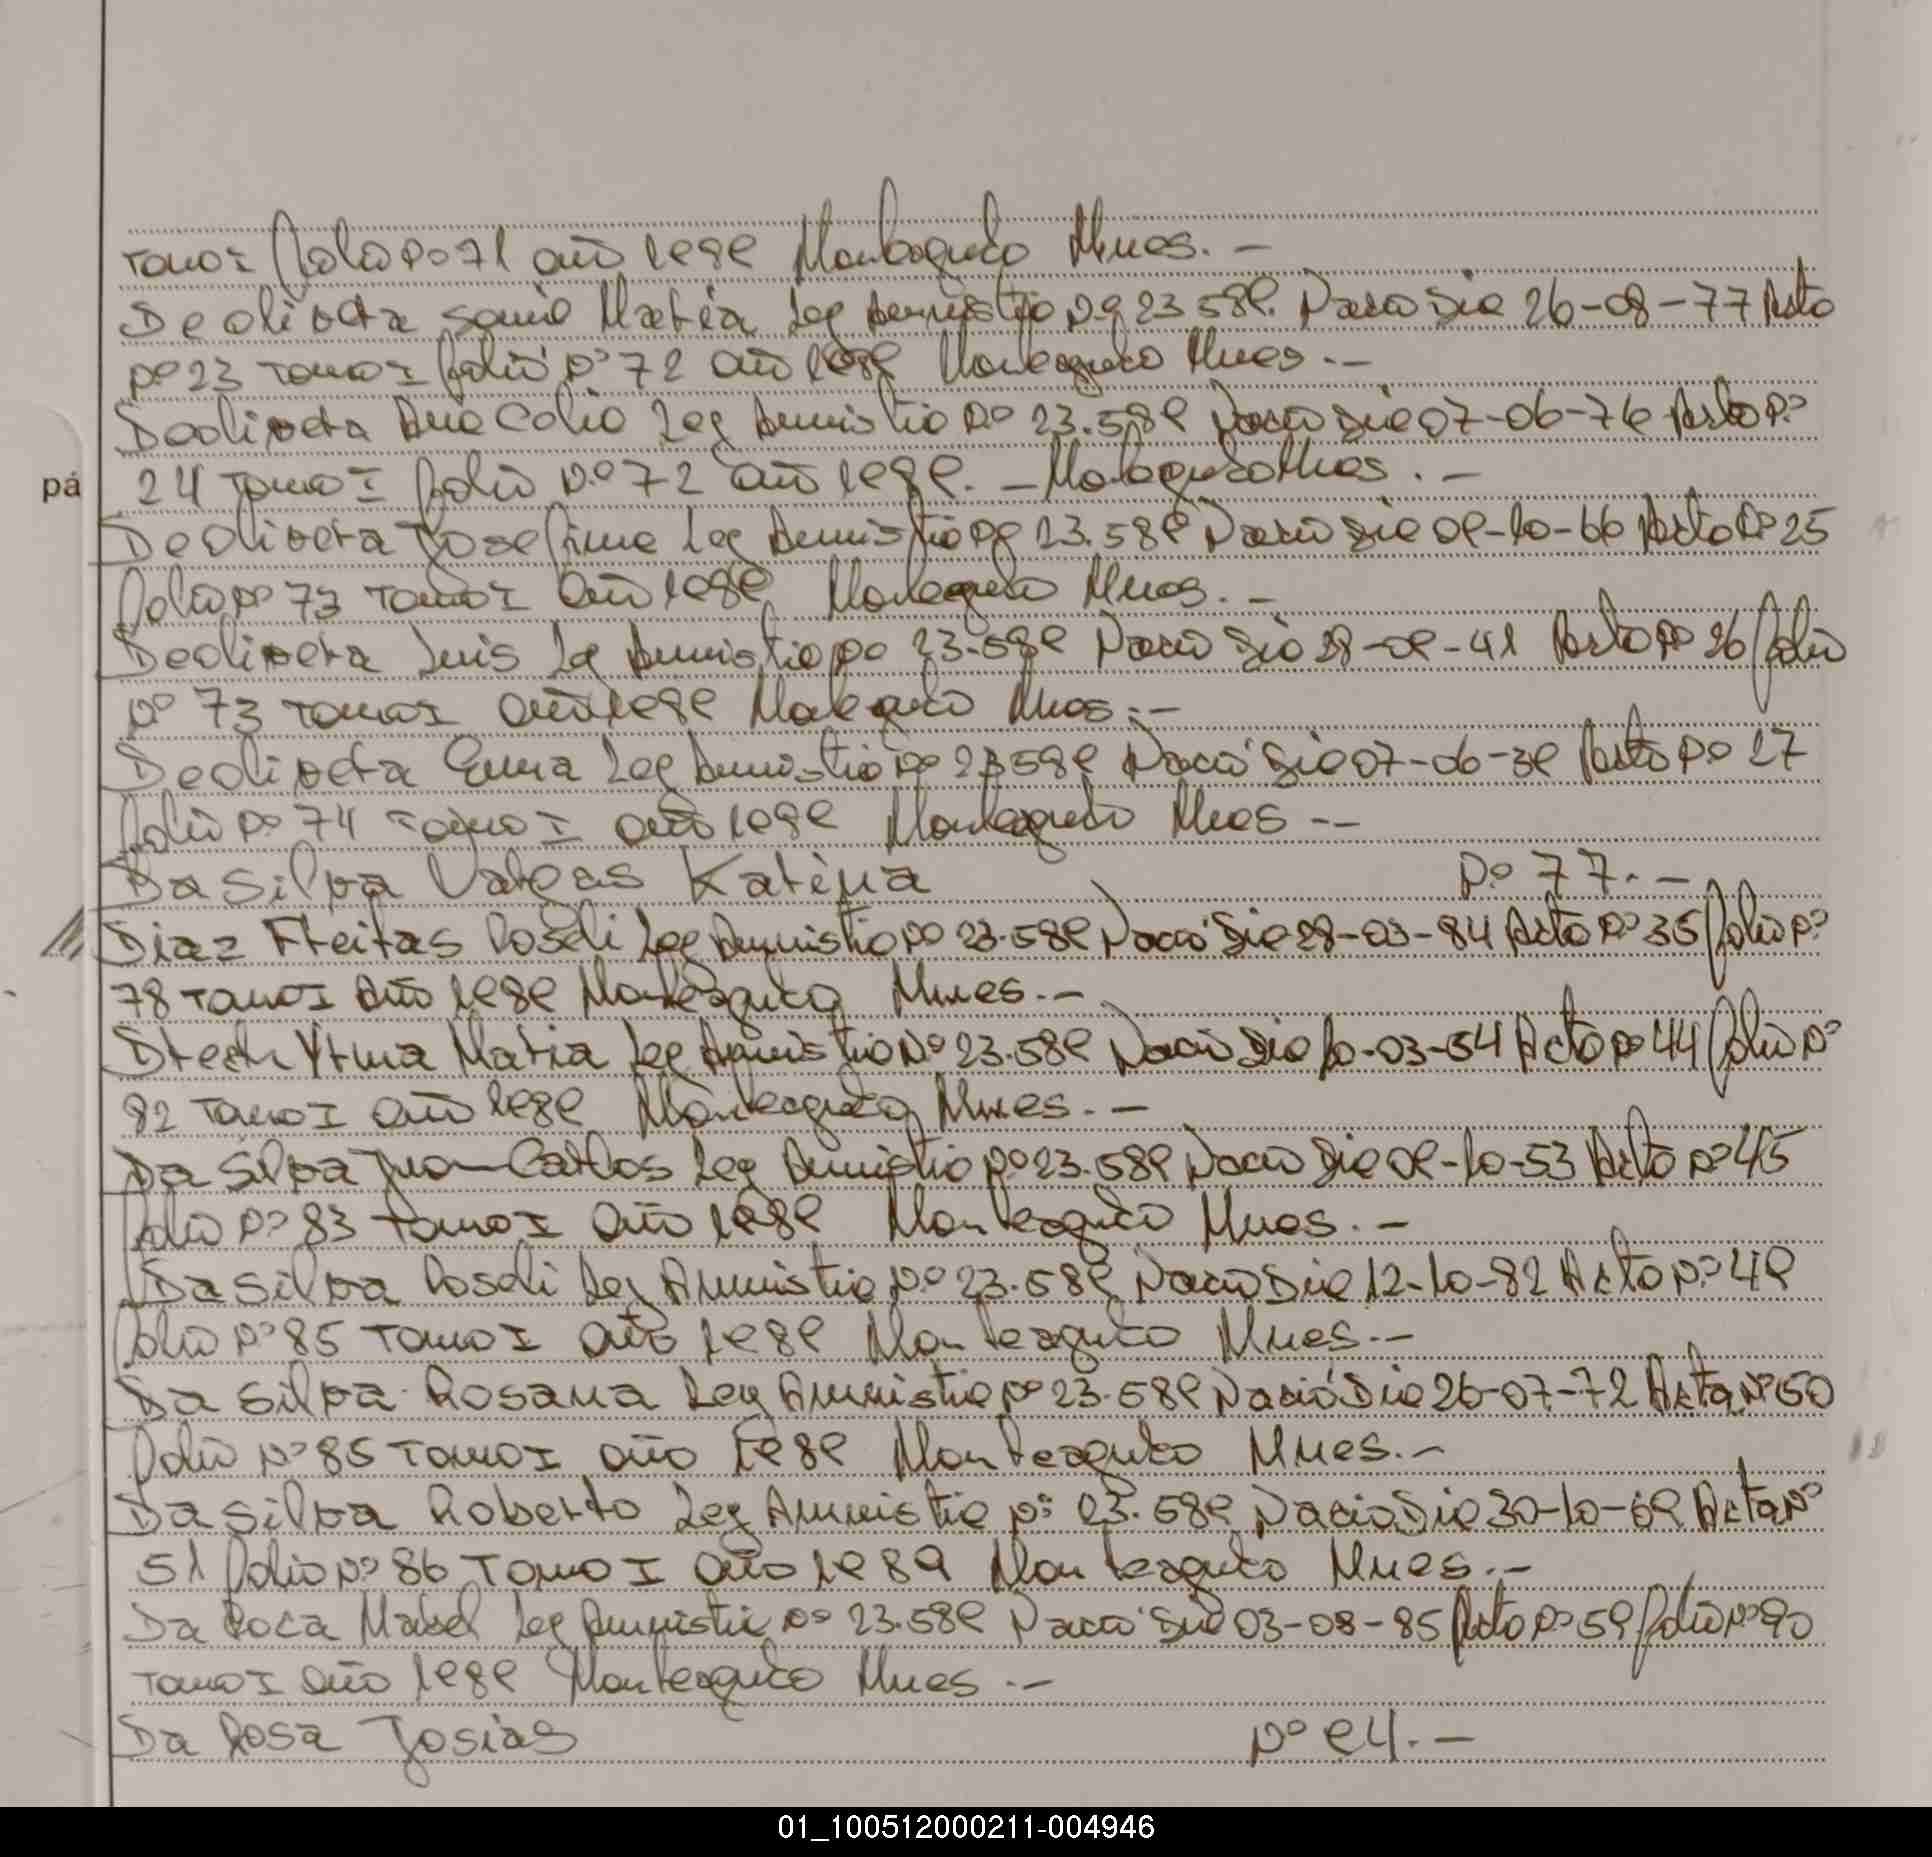 Tomo I folio Nº 71 año 1989 Monteagudo Mnes. –
De olivera Sonia Maria Ley Amnistia Nº 23.589. Nacio Dia 26-08-77 Acta
Nº 23 Tomo I folio Nº 72 año 1989 Monteagudo Mnes. –
Deolivera Ana Celia Ley Amnistia Nº 23.589 Nacio Dia 07-06-76 Acta Nº
24 Tomo I folio Nº 72 año 1989. – Monteagudo Mnes. –
De olivera Josefina Ley Amnistia Nº 23.589 Nacio Dia 09-10-66 Acta Nº 25
folio Nº 73 Tomo I año 1989 Monteagudo Mnes. –
Deolivera Luis Ley Amnistia Nº 23.589 Nacio Dia 28-09-41 Acta Nº 26 folio
Nº 73 Tomo I año 1989 Monteagudo Mnes. –
De olivera Enma Ley Amnistia Nº 23.589 Nació Dia 07-06-39 Acta Nº 27
folio Nº 74 Tomo I año 1989 Monteagudo Mnes –
Da Silva Vargas Katina Nº 77. –
Diaz Freitas Roseli Ley Amnistia Nº 23.589 Nació Dia 28-03-84 Acta Nº 35 folio Nº
78 Tomo I año 1989 Monteagudo Mnes. –
Drech Yrma Maria Ley Amnistia Nº 23.589 Nació Dia 10-03-54 Acta Nº 44 folio Nº
82 Tomo I año 1989 Monteagudo Mnes. –
Da Silva Juan Carlos Ley Amnistia Nº 23.589 Nacio Dia 09-10-53 Acta Nº 45
folio Nº 83 Tomo I año 1989 Monteagudo Mnes. –
Da Silva Roseli Ley Amnistia Nº 23.589 Nacio Dia 12-10-82 Acta Nº 49
folio Nº 85 Tomo I año 1989 Monteagudo Mnes. –
Da Silva Rosana Ley Amnistia Nº 23.589 Nació Dia 26-07-72 Acta Nº 50
folio Nº 85 Tomo I año 1989 Monteagudo Mnes. –
Da Silva Roberto Ley Amnistia Nº 23.589 Nacio Dia 30-10-69 Acta Nº
51 folio Nº 86 Tomo I año 1989 Monteagudo Mnes. –
Da Roca Mabel Ley Amnistia Nº 23.589 Nació Dia 03-08-85 Acta Nº 59 folio Nº 90
Tomo I año 1989 Monteagudo Mnes. –
Da Rosa Josias Nº 94. –
pá
01_100512000211-004946